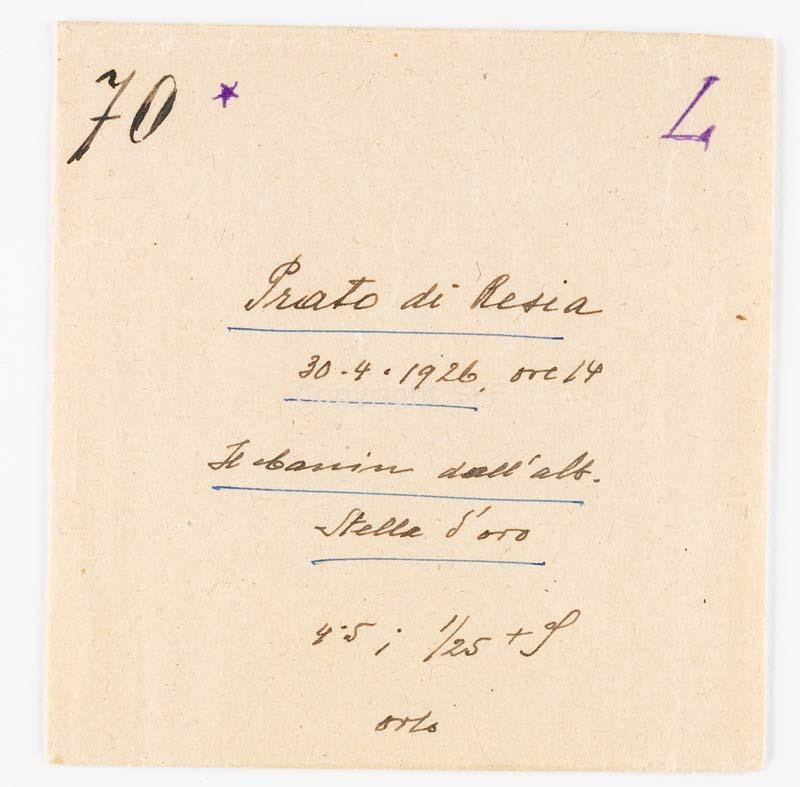 70 * L
Prato di Resia
30-4-1926, ore 14
Il Canin dall'alb.
Stella d'oro
4.5; 1/25 + S
orto